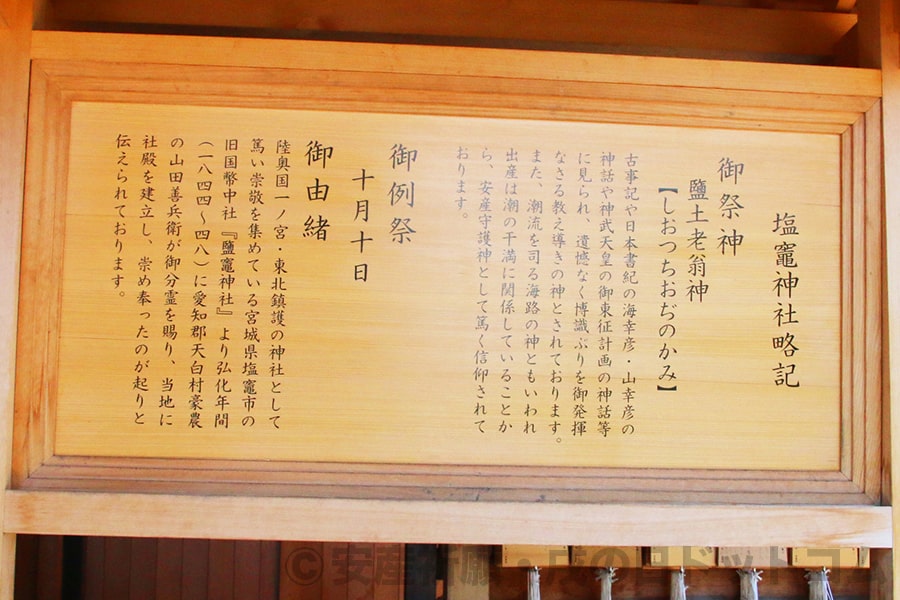 塩竈神社略記
御祭神
鹽土老翁神
【しおつちおぢのかみ】
古事記や日本書紀の海幸彦・山幸彦の
神話や神武天皇の御東征計画の神話等
に見られ、遺憾なく博識ぶりを御発揮
なさる教え導きの神とされております。
また、潮流を司る海路の神ともいわれ
出産は潮の干満に関係していることか
ら、安産守護神として篤く信仰されて
おります。
御例祭
十月十日
御由緒
陸奥国一ノ宮・東北鎮護の神社として
篤い崇敬を集めている宮城県塩竈市の
旧国幣中社『鹽竈神社』より弘化年間
(一八四四～四八)に愛知郡天白村豪農
の山田善兵衛が御分霊を賜り、当地に
社殿を建立し、崇め奉ったのが起りと
伝えられております。
© 安産祈願・戌の日ドットコム